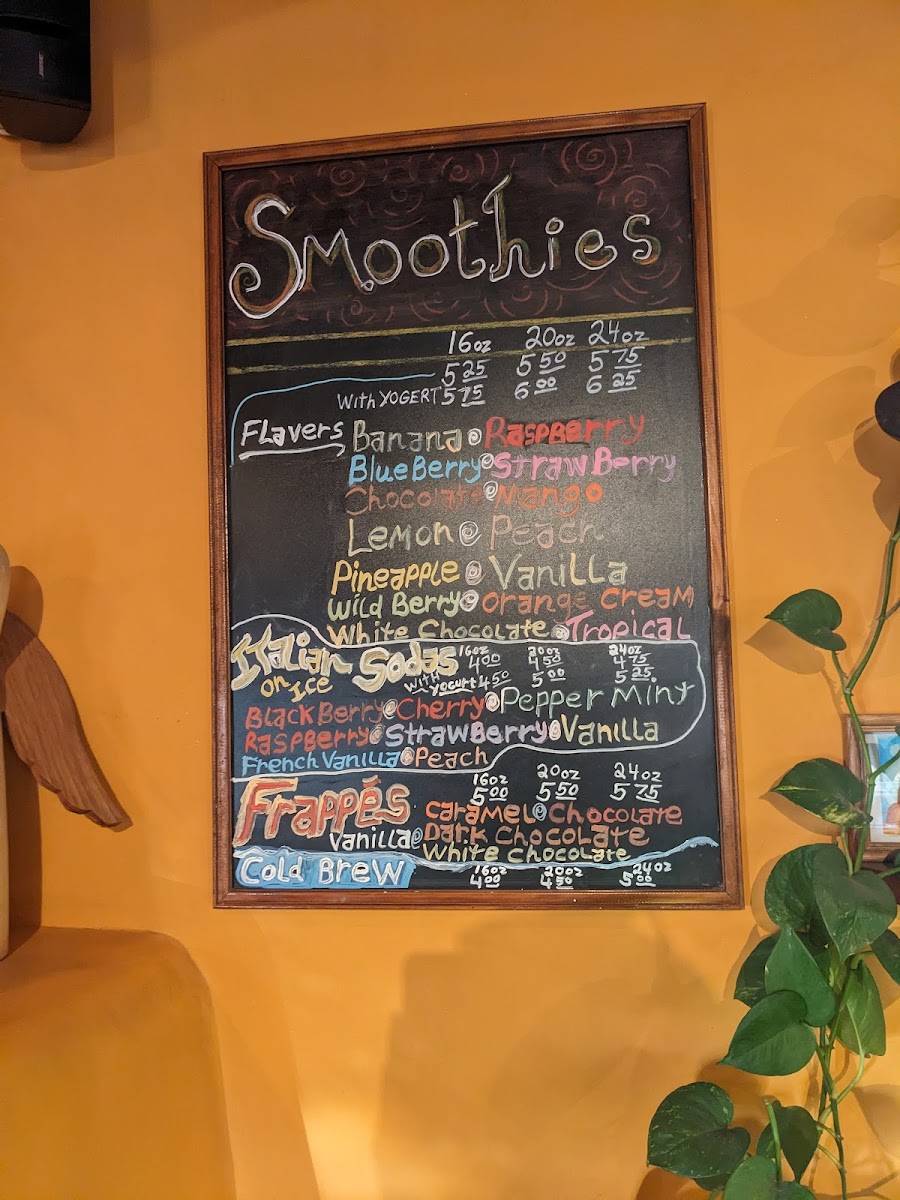 Smoothies
16oz 20oz 24oz
5 25 5 50 5 75
With YOGERT 5 75 6 00 6 25
Flavers Banana Raspberry
BlueBerry StrawBerry
Chocolate Mango
Lemon Peach
Pineapple Vanilla
Wild Berry Orange Cream
White Chocolate Tropical
Italian Sodas 16oz 20oz 24oz
4 00 4 50 4 75
on Ice with Yogurt 4 50 5 00 5 25
BlackBerry Cherry Pepper Mint
Raspberry StrawBerry Vanilla
French Vanilla Peach
Frappés 16oz 20oz 24oz
5 00 5 50 5 75
Caramel Chocolate
Vanilla Dark Chocolate
White Chocolate
Cold Brew 16oz 20oz 24oz
4 00 4 50 5 00